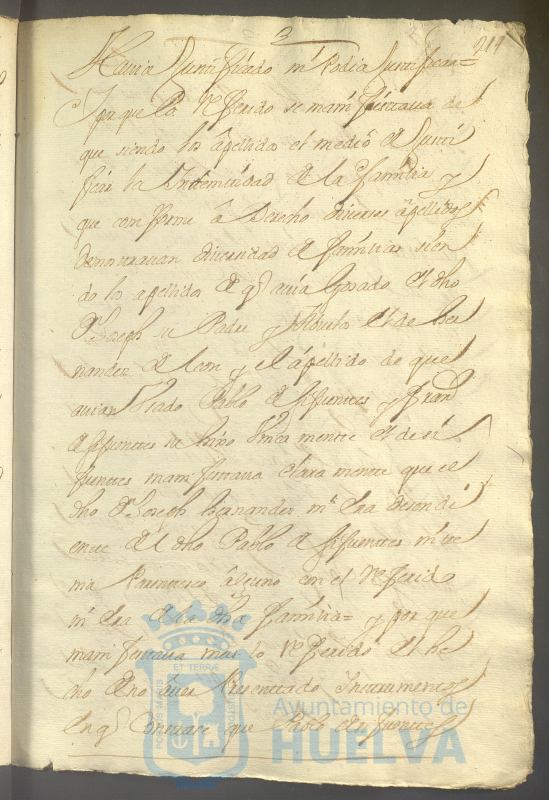 3
214
Havia Justificado ni Podia Justificar =
Y porque lo Referido se manifestava de
que siendo los apellidos el medio de Justi
ficar la Indemnidad de la familia y
que conforme â derecho diversos apellidos
demostravan diversidad de familias sien
do los apellidos de q avia Gosado el dho
Dn Joseph su Padre y Abuelo el de Her
nandez de Leon y el apellido de que
avian Vsado Pablo de sifuentes y Fran
de sifuentes su hijo Vnica mente el de si
fuentes manifestava clara mente que el
dho Dn Joseph Hernandez ni era desendi
ente del dho Pablo de sifuentes ni te
nia Parentesco alguno con el Referido
ni era de la dha familia = y porque
manifestava mas lo Referido el he
cho de no aver Presentado Instrumento
en q Constase que Pablo de sifuentes
PORTUS MARIS ET TERRÆ CUSTODIA
Ayuntamiento de
HUELVA